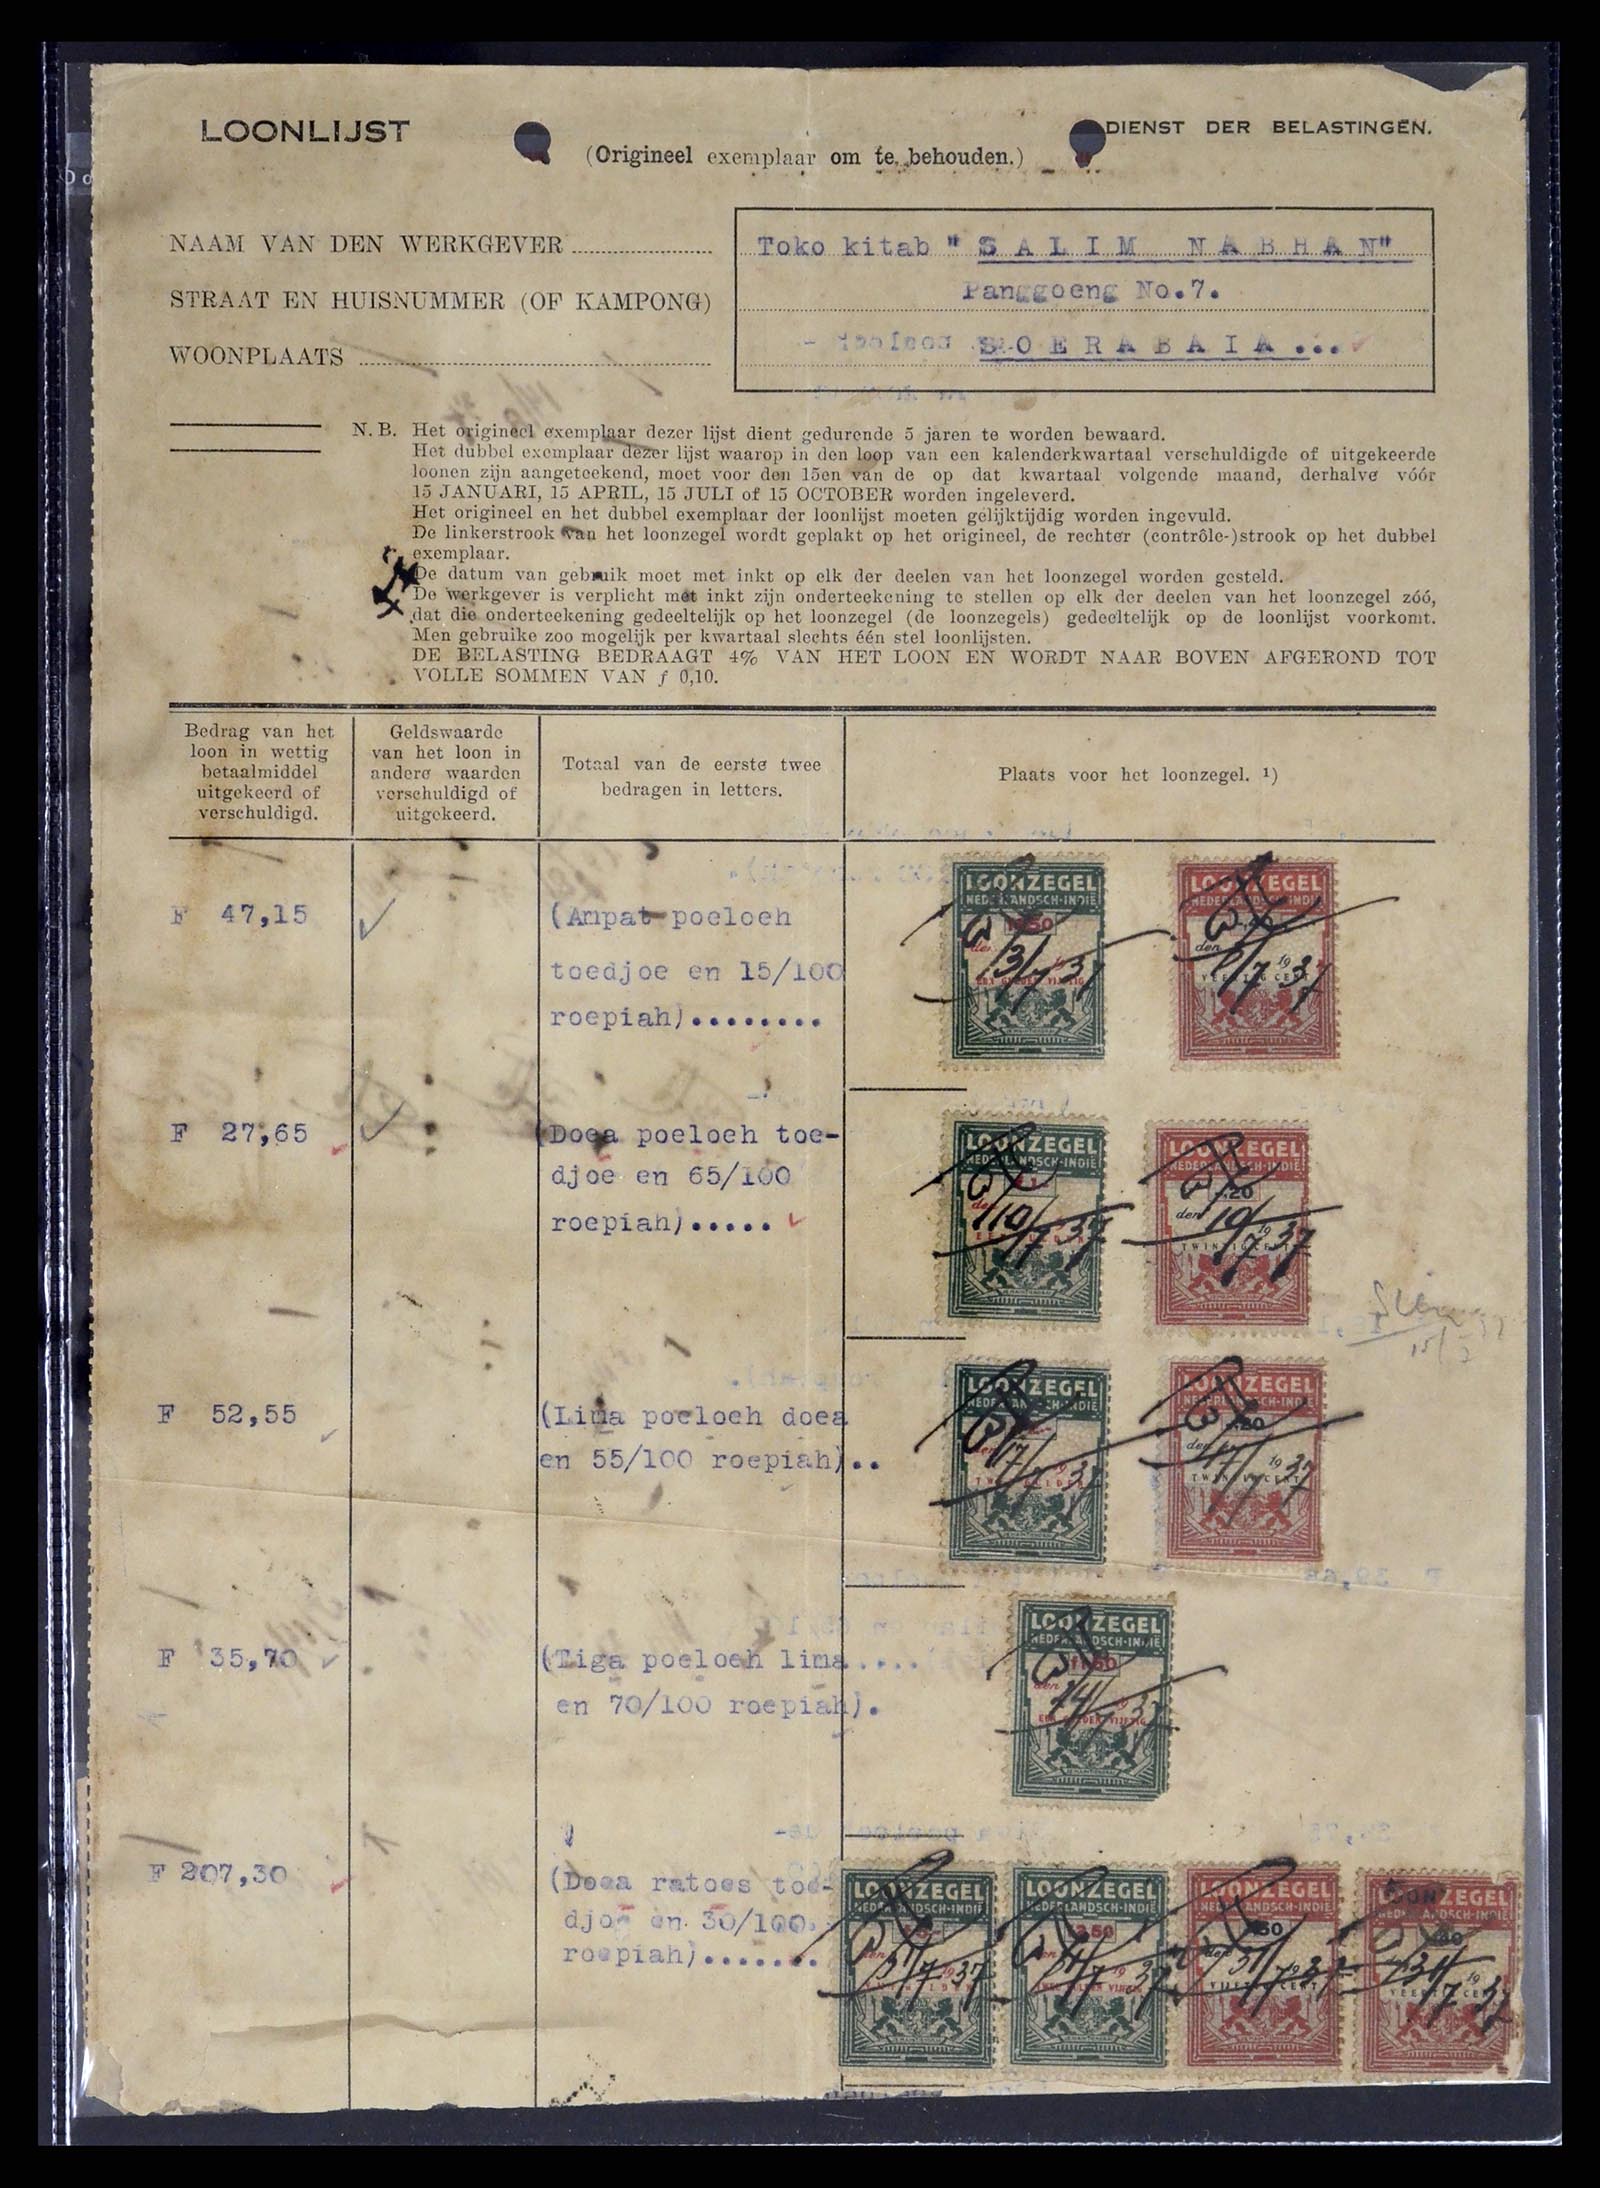 LOONLIJST
(Origineel exemplaar om te behouden.)
DIENST DER BELASTINGEN.
NAAM VAN DEN WERKGEVER
Toko kitab "SALIM NABHAN"
STRAAT EN HUISNUMMER (OF KAMPONG)
Panggoeng No.7.
WOONPLAATS
SOERABAIA...
N.B. Het origineel exemplaar dezer lijst dient gedurende 5 jaren te worden bewaard.
Het dubbel exemplaar dezer lijst waarop in den loop van een kalenderkwartaal verschuldigde of uitgekeerde
loonen zijn aangeteekend, moet voor den 15en van de op dat kwartaal volgende maand, derhalve vóór
15 JANUARI, 15 APRIL, 15 JULI of 15 OCTOBER worden ingeleverd.
Het origineel en het dubbel exemplaar der loonlijst moeten gelijktijdig worden ingevuld.
De linkerstrook van het loonzegel wordt geplakt op het origineel, de rechter (contrôle-)strook op het dubbel
exemplaar.
De datum van gebruik moet met inkt op elk der deelen van het loonzegel worden gesteld.
De werkgever is verplicht met inkt zijn onderteekening te stellen op elk der deelen van het loonzegel zóó,
dat die onderteekening gedeeltelijk op het loonzegel (de loonzegels) gedeeltelijk op de loonlijst voorkomt.
Men gebruike zoo mogelijk per kwartaal slechts één stel loonlijsten.
DE BELASTING BEDRAAGT 4% VAN HET LOON EN WORDT NAAR BOVEN AFGEROND TOT
VOLLE SOMMEN VAN ƒ 0,10.
Bedrag van het
loon in wettig
betaalmiddel
uitgekeerd of
verschuldigd.
Geldswaarde
van het loon in
andere waarden
verschuldigd of
uitgekeerd.
Totaal van de eerste twee
bedragen in letters.
Plaats voor het loonzegel. ¹)
F 47,15
(Ampat poeloeh
toedjoe en 15/100
roepiah)........
LOONZEGEL
NEDERLANDSCH-INDIË
den
LOONZEGEL
NEDERLANDSCH-INDIË
den
VEERTIG CENT
F 27,65
(Doea poeloeh toe-
djoe en 65/100
roepiah).....
LOONZEGEL
NEDERLANDSCH-INDIË
den 10/7 37
LOONZEGEL
NEDERLANDSCH-INDIË
-.20
den 10/7 1937
TWINTIG CENT
F 52,55
(Lima poeloeh doea
en 55/100 roepiah)..
LOONZEGEL
NEDERLANDSCH-INDIË
17/7 37
LOONZEGEL
NEDERLANDSCH-INDIË
-.20
den 17/7 1937
TWINTIG CENT
F 35,70
(Tiga poeloeh lima....
en 70/100 roepiah).
LOONZEGEL
NEDERLANDSCH-INDIË
f1.50
den
EEN GULDEN VIJFTIG
F 207,30
(Doea ratoes toe-
djoe en 30/100
roepiah).......
LOONZEGEL
NEDERLANDSCH-INDIË
den 31/7 1937
LOONZEGEL
NEDERLANDSCH-INDIË
den
LOONZEGEL
NEDERLANDSCH-INDIË
den 31/7 1937
VIJFTIG CENT
LOONZEGEL
NEDERLANDSCH-INDIË
31/7 1937
VEERTIG CENT